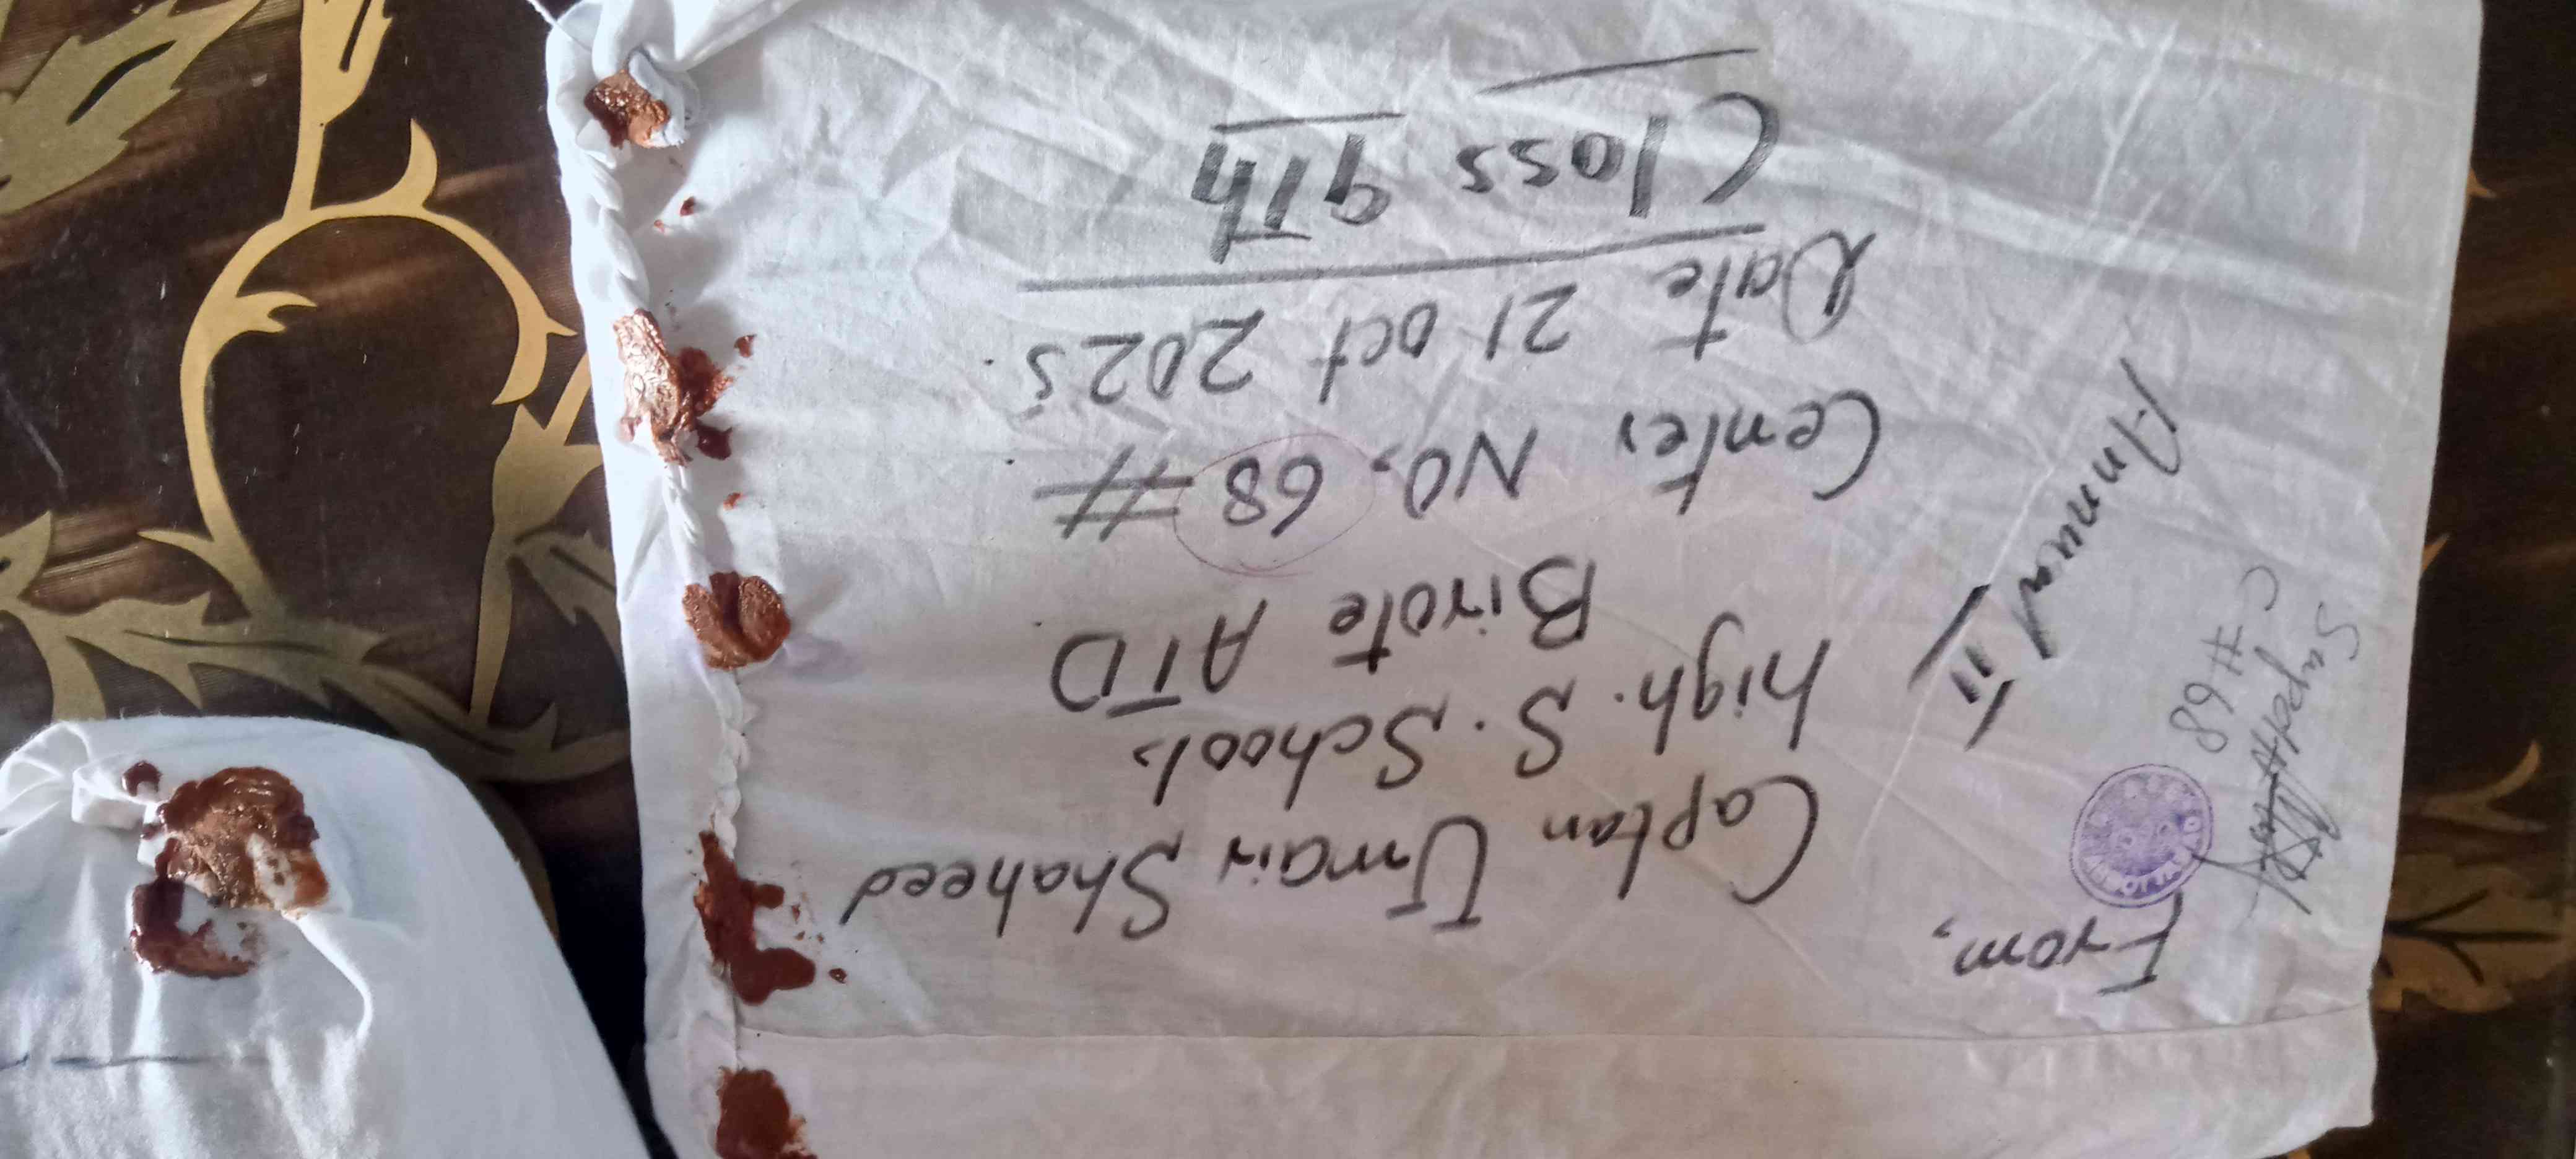 From,
Captan Umair Shaheed
high. S. School.
Birote ATD
Center NO. 68 #
Date 21 oct 2025.
Class 9Th
Annual ii
Supdtt
C # 68